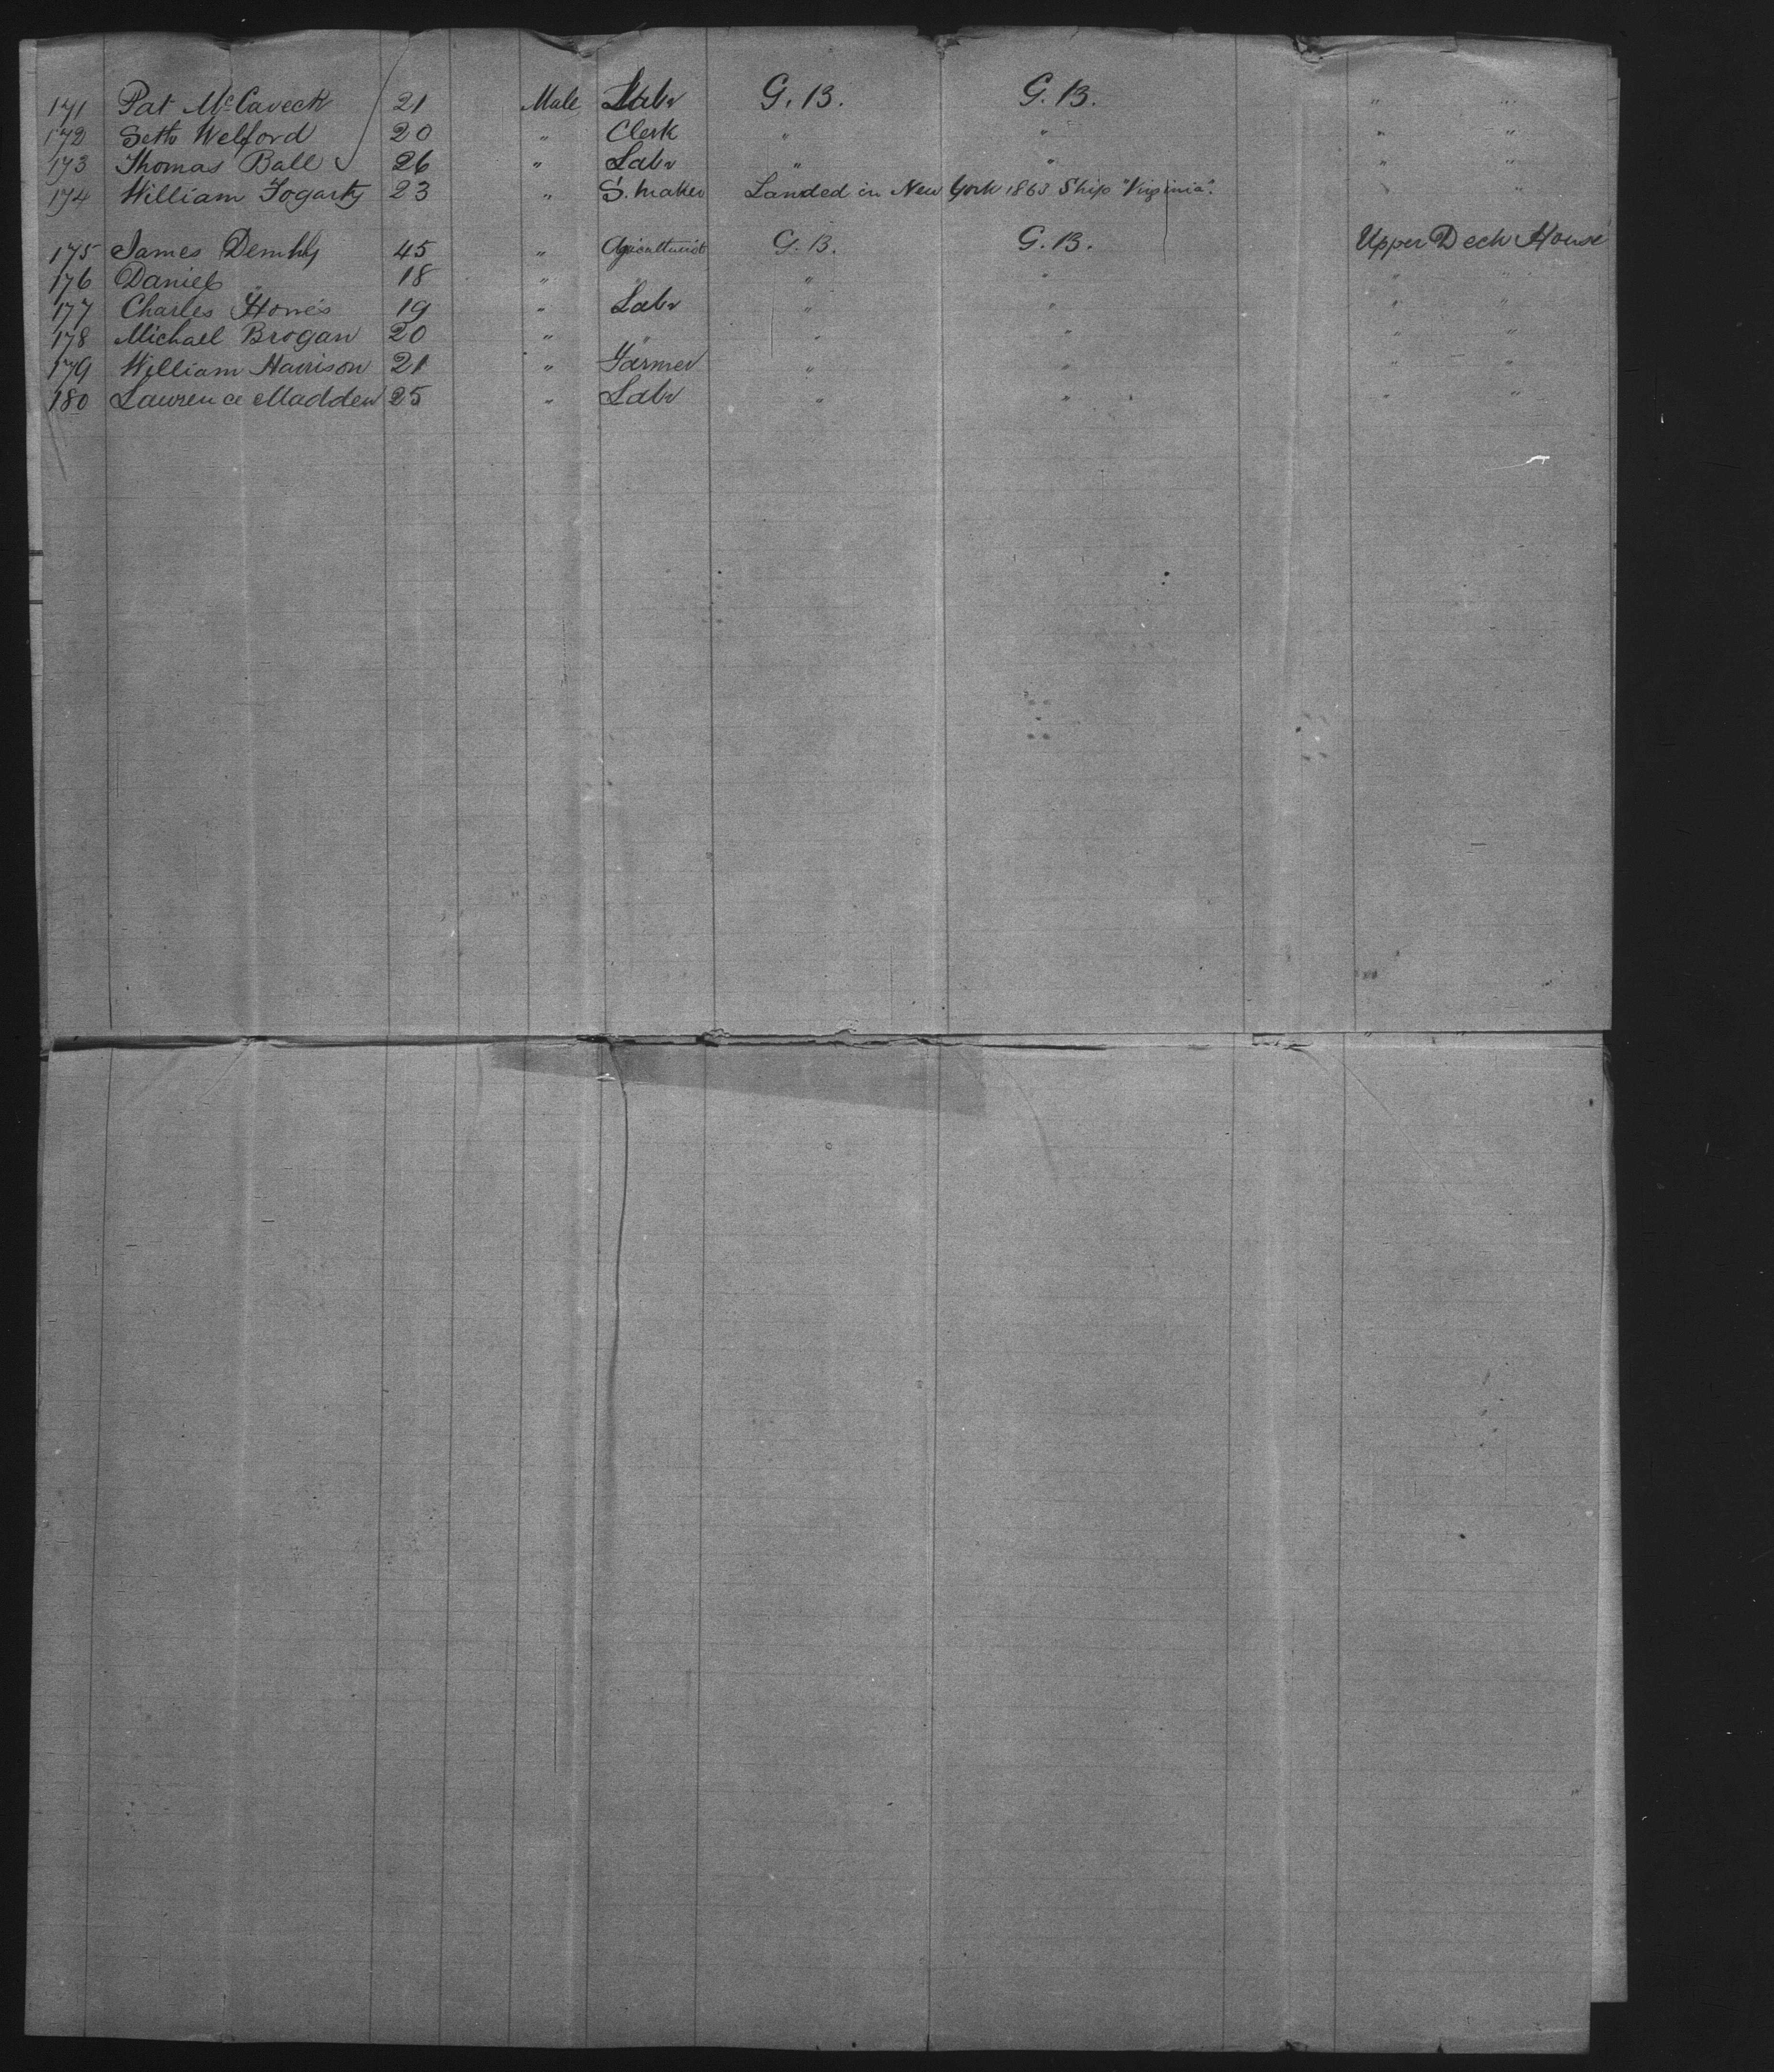 171 Pat McCaveck 21 Male Labr G. B. G. B. " "
172 Seth Welford 20 " Clerk " " " "
173 Thomas Ball 26 " Labr " " " "
174 William Fogarty 23 " S. maker Landed in New York 1863 Ship "Virginia". "
175 James 45 " Agriculturist G. B. G. B. Upper Deck House
176 Daniel " 18 " " " " " "
177 Charles 19 " Labr " " " "
178 Michael Brogan 20 " " " " " "
179 William Harrison 21 " Farmer " " " "
180 Laurence Madden 25 " Labr " " " "